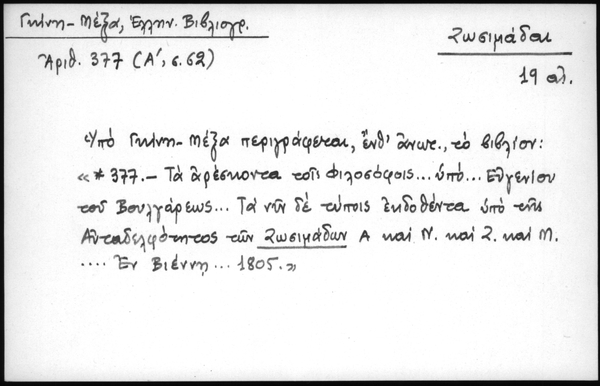 Γκίνη-Μέξα, Ἑλλην. Βιβλιογρ.
Ζωσιμάδαι
Ἀριθ. 377 (Α΄, σ. 62)
19 αἰ.
Ὑπό Γκίνη-Μέξα περιγράφεται, ἔνθ' ἀνωτ., τὸ βιβλίον:
« * 377.— Τὰ ἀρέσκοντα τοῖς Φιλοσόφοις... ὑπό... Εὐγενίου
τοῦ Βουλγάρεως... Τὰ νῦν δέ τύποις ἐκδοθέντα ὑπό τῆς
Αὐταδελφότητος τῶν Ζωσιμάδων Α καί Ν. καί Ζ. καί Μ.
.... Ἐν Βιέννῃ... 1805.»